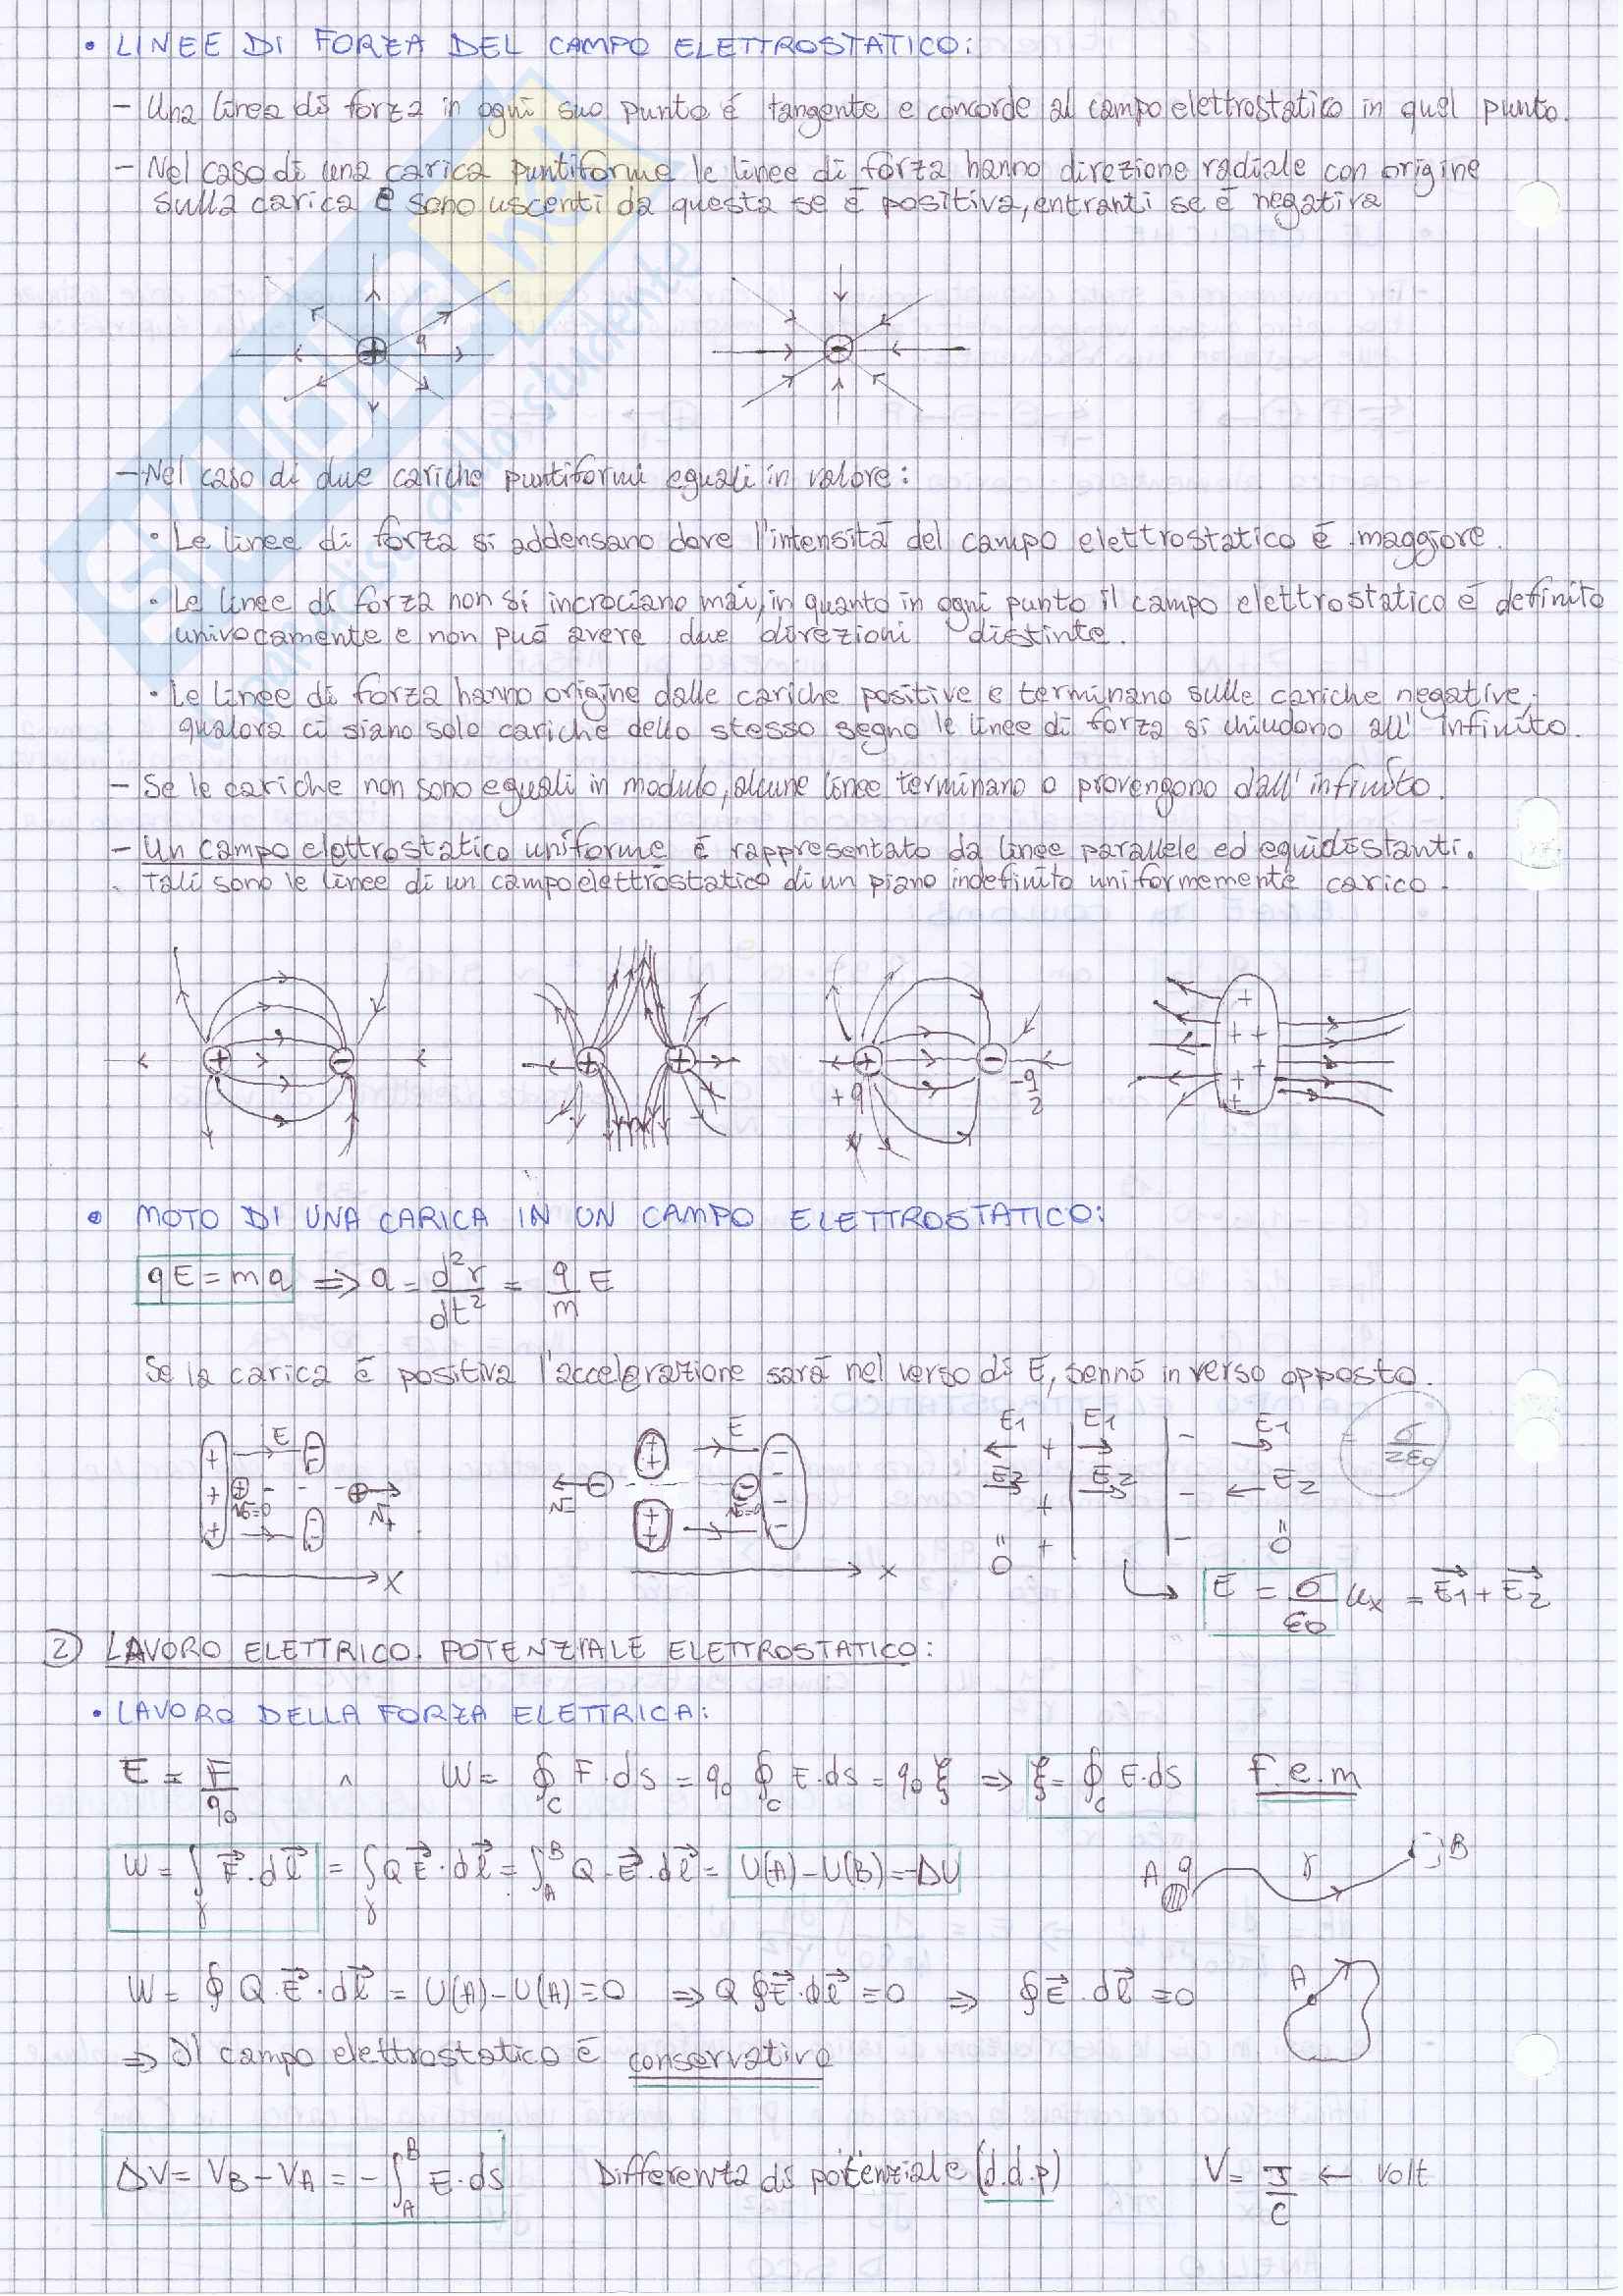 • LINEE DI FORZA DEL CAMPO ELETTROSTATICO:
- Una linea di forza in ogni suo punto é tangente e concorde al campo elettrostatico in quel punto.
- Nel caso di una carica puntiforme le linee di forza hanno direzione radiale con origine
sulla carica e sono uscenti da questa se é positiva, entranti se é negativa
+ q
-
- Nel caso di due cariche puntiformi eguali in valore:
• Le linee di forza si addensano dove l'intensitá del campo elettrostatico é maggiore.
• Le linee di forza non si incrociano mai, in quanto in ogni punto il campo elettrostatico é definito
univocamente e non puó avere due direzioni distinte.
• Le linee di forza hanno origine dalle cariche positive e terminano sulle cariche negative;
qualora ci siano solo cariche dello stesso segno le linee di forza si chiudono all'infinito.
- Se le cariche non sono eguali in modulo, alcune linee terminano o provengono dall'infinito.
- Un campo elettrostatico uniforme é rappresentato da linee parallele ed equidistanti.
Tali sono le linee di un campo elettrostatico di un piano indefinito uniformemente carico.
+ - + + + - +
+q -q/2 + + + + +
• MOTO DI UNA CARICA IN UN CAMPO ELETTROSTATICO:
qE = ma ⇒ a = d²r/dt² = q/m E
Se la carica é positiva l'accelerazione sará nel verso di E, sennó in verso opposto.
E E E1 E1 E1 σ/2ε0
E2 E2 E2
v=0 v+ v- v=0
0 0
x x
E = σ/ε0 ux = E⃗1 + E⃗2
2) LAVORO ELETTRICO. POTENZIALE ELETTROSTATICO:
• LAVORO DELLA FORZA ELETTRICA:
E = F/q0 ∧ W = ∮C F·ds = q0 ∮C E·ds = q0 ξ ⇒ ξ = ∮C E·ds f.e.m
W = ∫γ F⃗·dl⃗ = ∫γ QE⃗·dl⃗ = ∫A^B Q·E⃗·dl⃗ = U(A)-U(B) = -ΔU A q γ B
W = ∮ Q·E⃗·dl⃗ = U(A)-U(A) = 0 ⇒ Q ∮E⃗·dl⃗ = 0 ⇒ ∮E⃗·dl⃗ = 0 A
⇒ Il campo elettrostatico é conservativo
ΔV = VB - VA = -∫A^B E·ds Differenza di potenziale (d.d.p) V = J/C ← Volt
SKUOLA.net